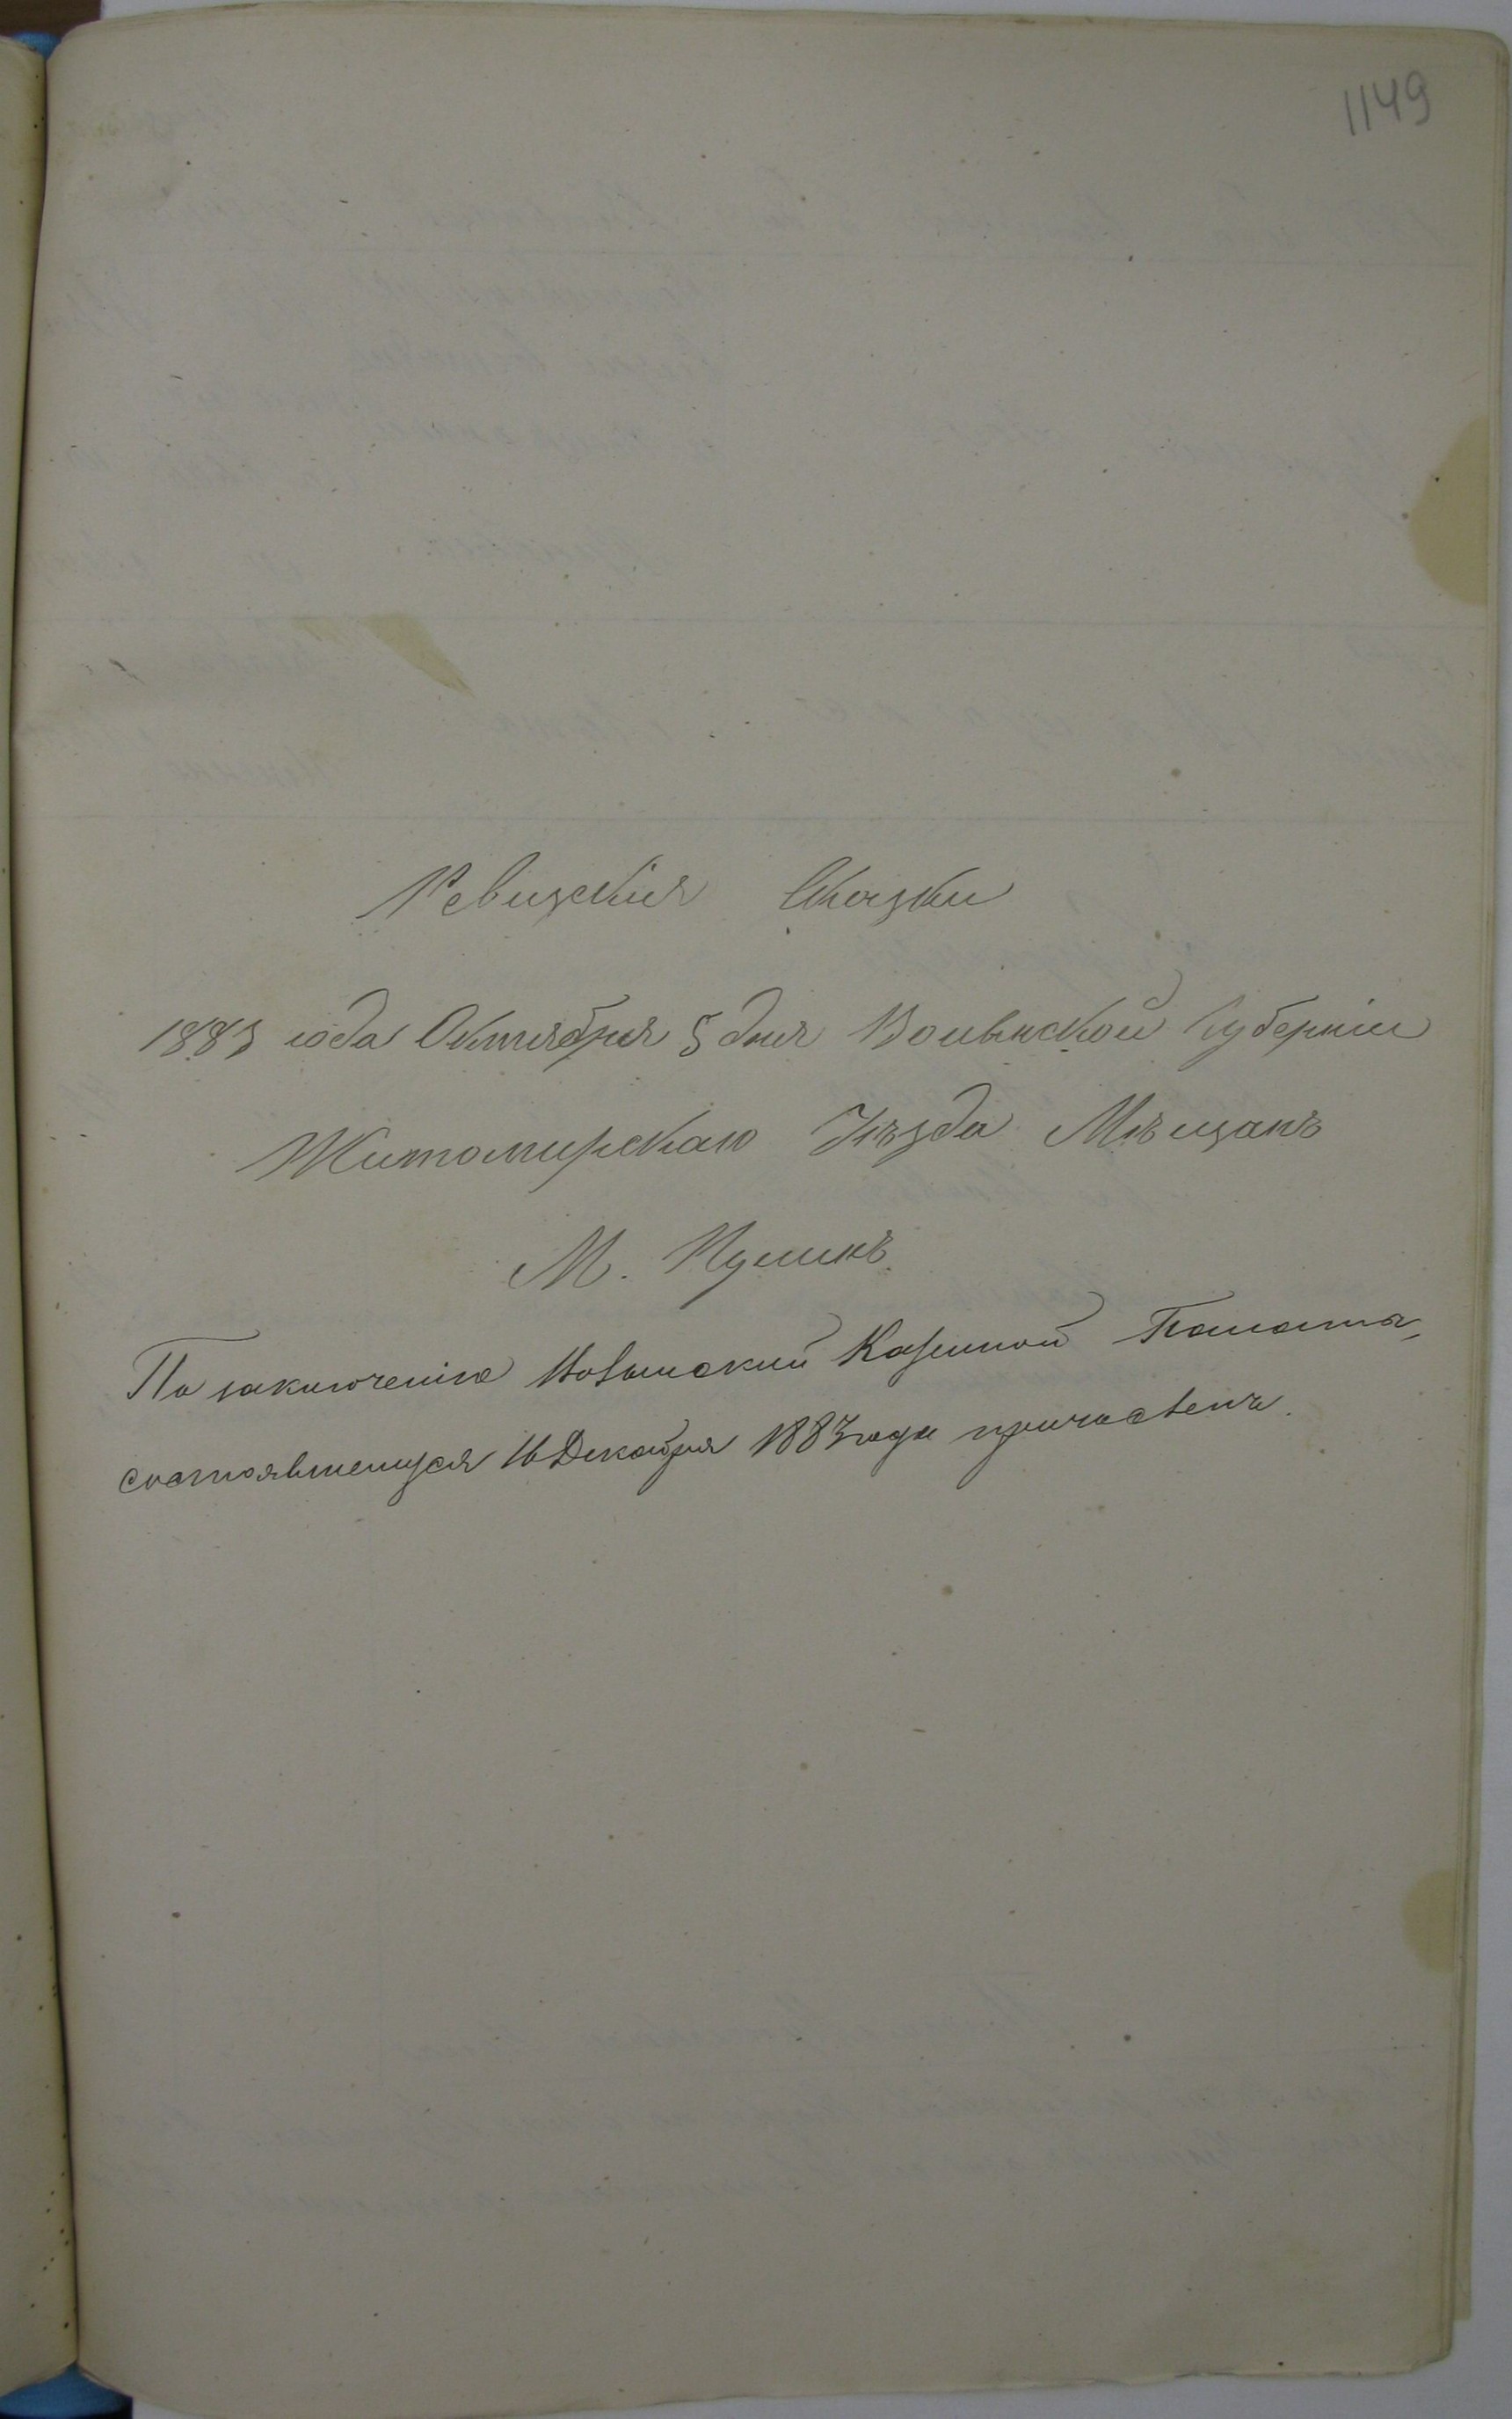 1149
Ревизскія Сказки
1883 года Октября 5 дня Волынской Губерніи
Житомирскаго Уѣзда Мѣщанъ
М. Пулинъ
По заключенію Волынской Казенной Палаты,
состоявшемуся 16 Декабря 1883 года причислены.